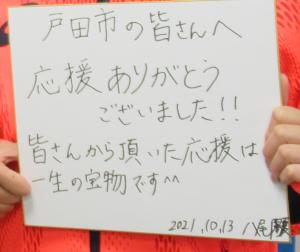 戸田市の皆さんへ
応援ありがとう
ございました!!
皆さんから頂いた応援は
一生の宝物です^^
2021.10.13 八尾